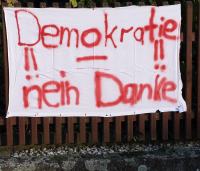 Demokratie
!! – !!
nein Danke